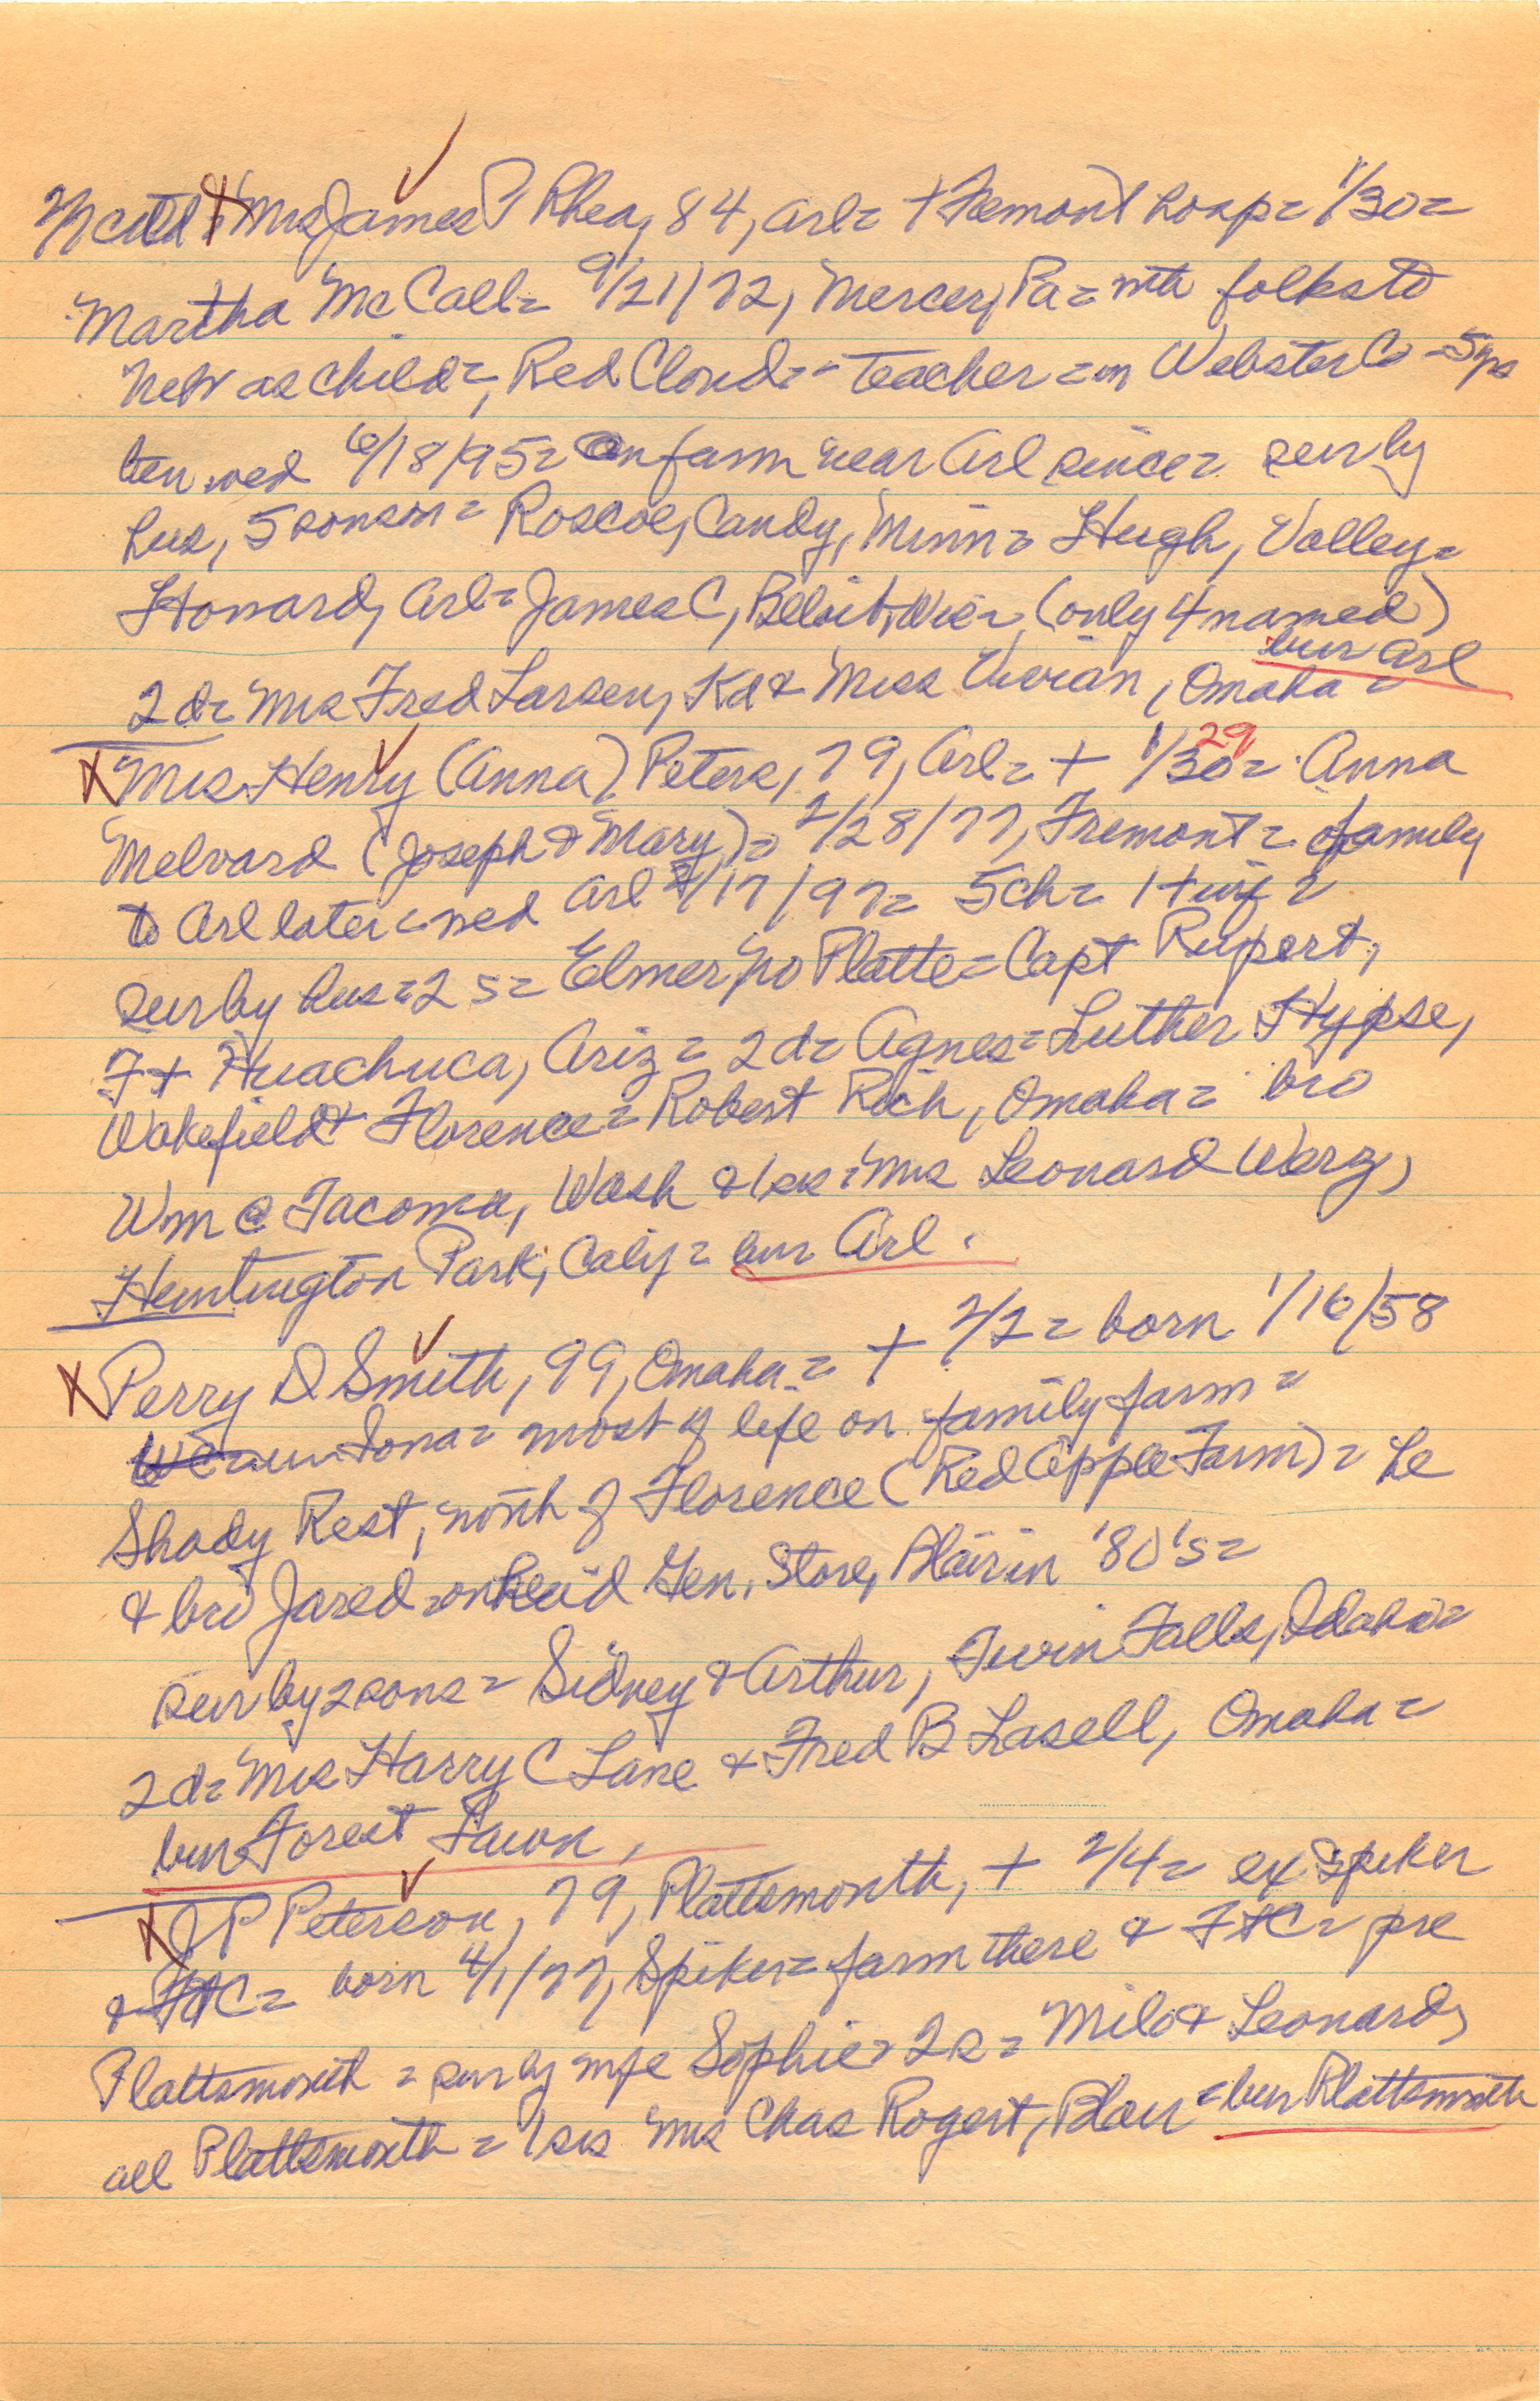 Mrs James P Rhea, 84, Arl = + Fremont hosp = 1/30 =
Martha McCall = 9/21/72, Mercer, Pa = with folks to
Neb as child =, Red Cloud = - teacher = in Webster Co - 5 yrs
wed 6/18/95 = On farm near Arl since = sur by
hus, 5 sons = Roscoe, Candy, Minn = Hugh, Valley =
Howard, Arl = James C, Beloit, Wis = (only 4 named)
bur Arl
2 d = Mrs Fred Larsen, Kd & Miss Vivian, Omaha =
X Mrs Henry (Anna) Peters, 79, Arl = + 1/30 29 = Anna
Melvard (Joseph & Mary) = 2/28/77, Fremont = family
to Arl later = wed Arl /17/97 = 5 ch = 1 + inf =
sur by hus = 2 s = Elmer, No Platte = Capt Rupert,
Ft Huachuca, Ariz = 2 d = Agnes = Luther Hypse,
Wakefield & Florence = Robert Rich, Omaha = bro
Wm @ Tacoma, Wash & 1 sis = Mrs Leonard Werz,
Huntington Park, Calif = bur Arl.
X Perry D Smith, 99, Omaha = + 2/2 = born 1/16/58
Iona = most of life on family farm =
Shady Rest, north of Florence (Red Apple Farm) = he
& bro Jared = Gen. Store, Blair in '80's =
sur by 2 sons = Sidney & Arthur, Twin Falls, Idaho =
2 d = Mrs Harry C Lane & Fred B Lasell, Omaha =
bur Forest Lawn,
X J P Peterson, 79, Plattsmouth, + 2/4 = ex Spiker
& FtC = born 4/1/77, Spiker = farm there & FtC = pre
Plattsmouth = sur by wife Sophie = 2 s = Milo & Leonard,
all Plattsmouth = 1 sis Mrs Chas Rogert, Blair = bur Plattsmouth